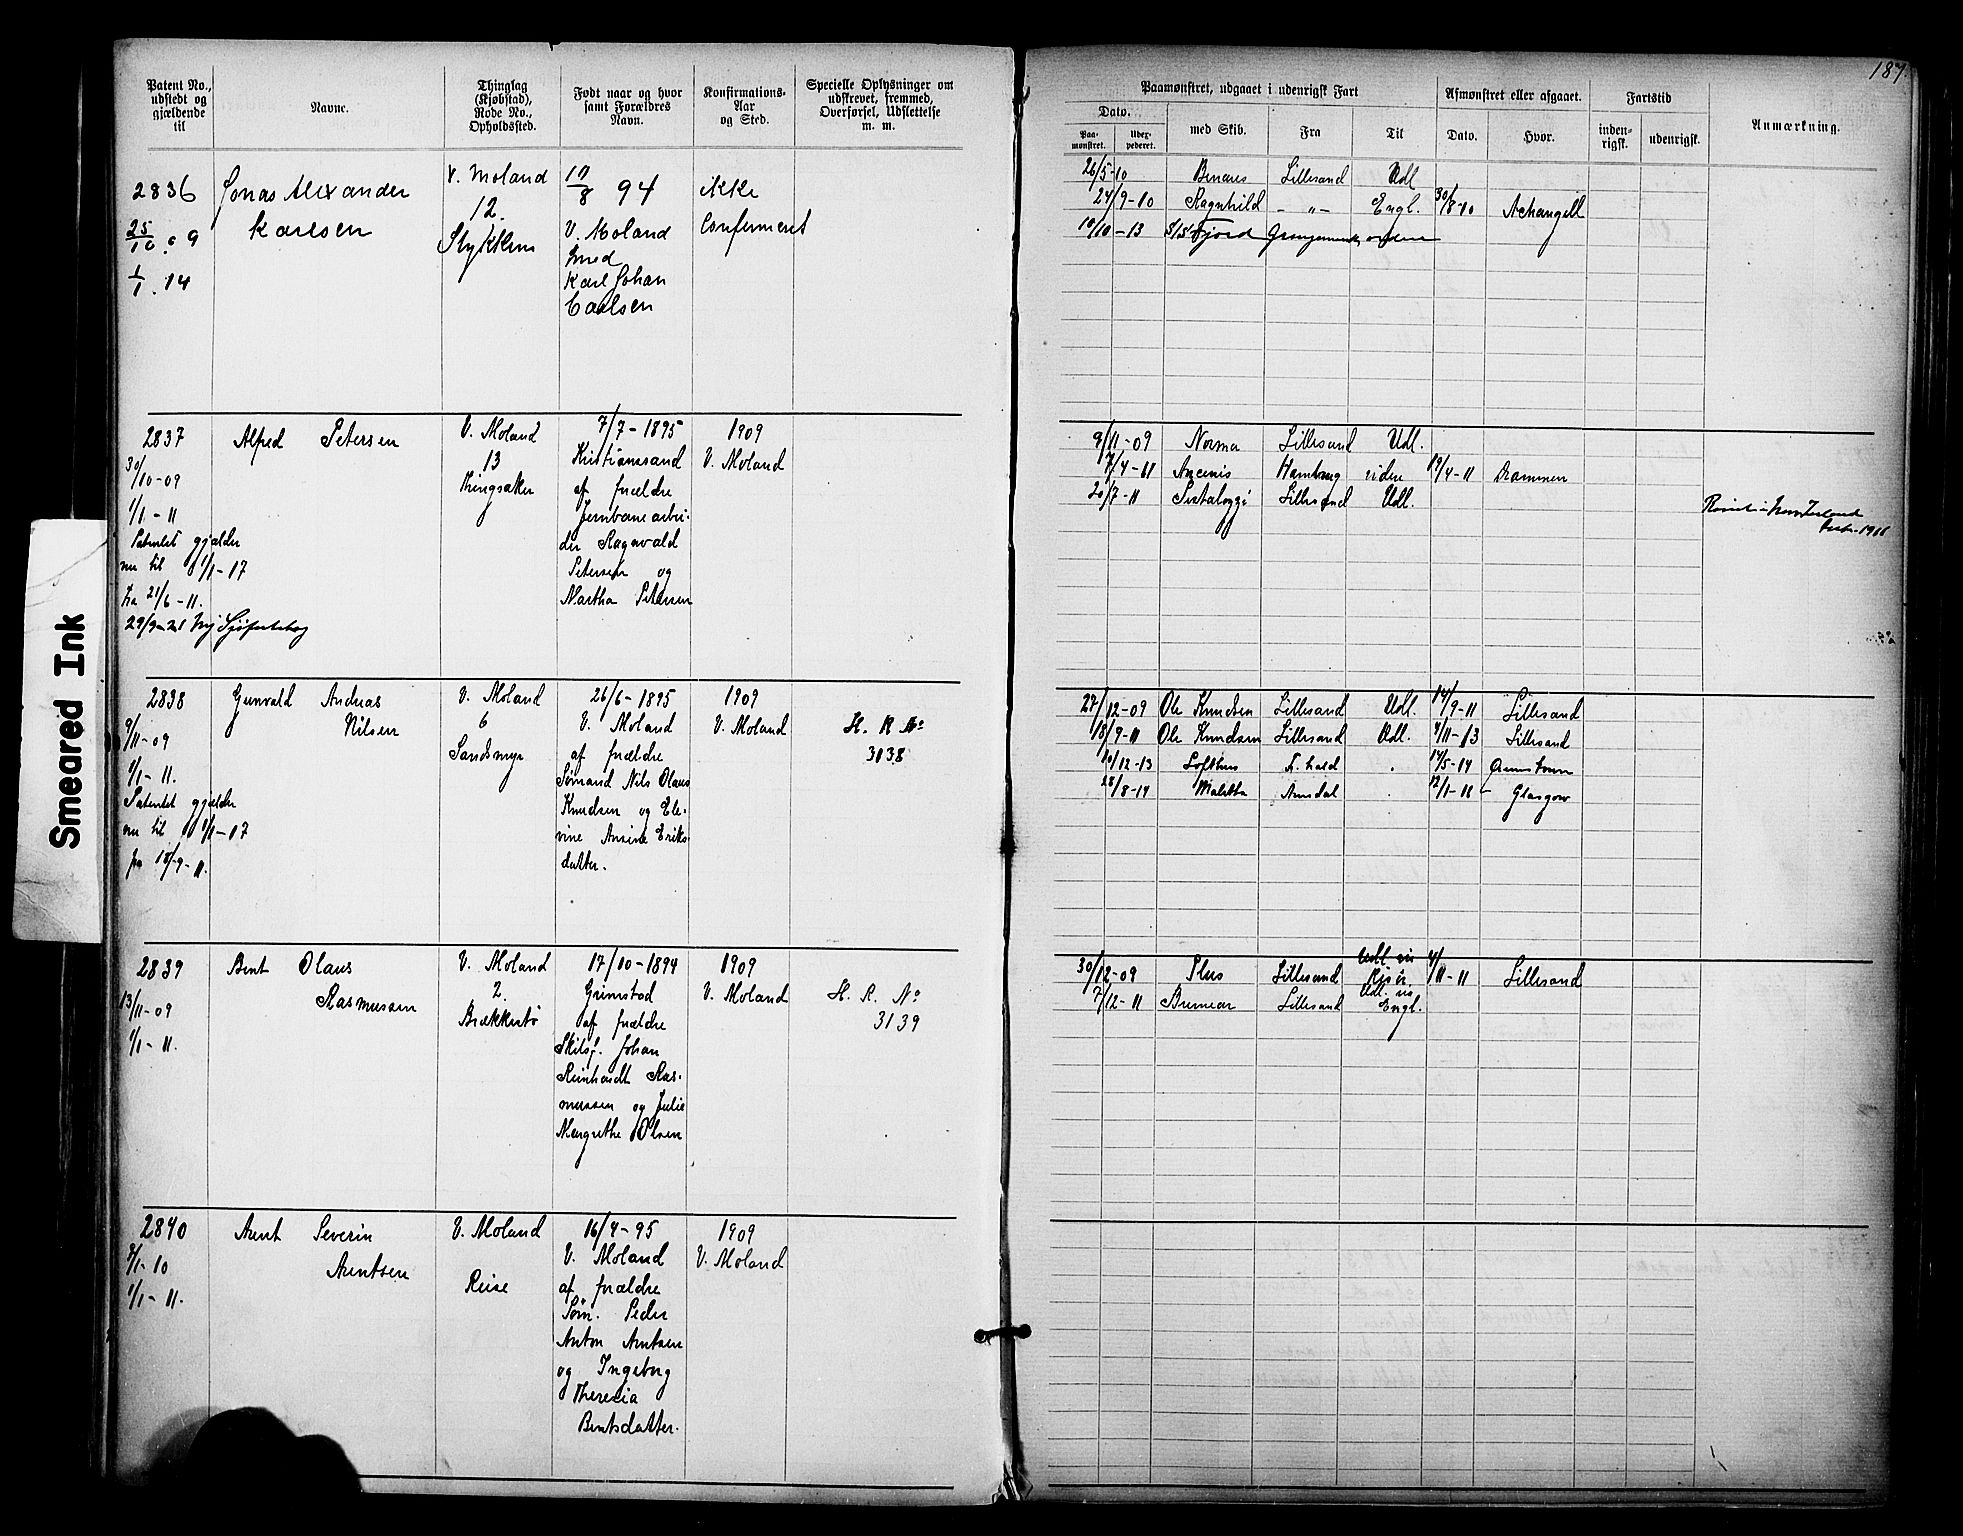 187.
Smeared Ink
Patent No., udstedt og gjældende til
Navne.
Thinglag (Kjøbstad), Rode No., Opholdssted.
Født naar og hvor samt Forældres Navn.
Konfirmations-Aar og Sted.
Specielle Oplysninger om udskrevet, fremmed, Overførsel, Udslettelse m. m.
Paamønstret, udgaaet i udenrigsk Fart
Dato.
Paa-mønstret.
med Skib.
Fra
Til
Afmønstret eller afgaaet.
Dato.
Hvor.
Fartstid
inden-rigsk.
udenrigsk.
Anmærkning.
2836 Jonas Alexander Karlsen
25/10 09
1/1 . 14
V. Moland
12.
17/8 94
V. Moland
Karl Johan
Carlsen
ikke
Confermeret
26/5-10 Benares Lillesand Udl
24/9-10 Ragnhild - " - Engl. 30/8-10 Achangell
10/10-13 S/S Fjord
2837 Alfred Petersen
30/10-09
1/1-11
Patentet gjælder
nu til 1/1-17
fra 21/6-11.
V. Moland
13
Ringsaker
7/7-1895
Kristianssand
af forældre
Jernbanearbei-
der Ragnvald
Petersen og
Martha Petersen
1909
V. Moland
9/11-09 Norma Lillesand Udl.
7/4-11 Hamburg videre 19/4-11 Drammen
20/7-11 Lillesand Udl.
2838 Gunvald Andreas
Nilsen
9/11-09
1/1-11.
Patentet gjælder
nu til 1/1-17
fra 18/9-11.
V. Moland
6
Sandsmyr
26/6-1895
V. Moland
af forældre
Sømand Nils Olaus
Knudsen og Ele-
vine Amine Eriks-
datter.
1909
V. Moland
H. R. No
3138
27/12-09 Ole Knudsen Lillesand Udl. 14/9-11 Lillesand
18/9-11 Ole Knudsen Lillesand Udl. 4/11-13 Lillesand
10/12-13 Lofthus F. hald 14/5-14
28/8-14 Arendal 12/1-16 Glasgow
2839 Bent Olaus
Rasmussen
13/11-09
1/1-11.
V. Moland
2.
Brækkestø
17/10-1894
Grimstad
af forældre
Skibsf. Johan
Reinhardt Ras-
mussen og Julie
Margrethe Olsen
1909
V. Moland
H. R. No
3139
30/12-09 Plus Lillesand Udl. via Risør. 4/11-11 Lillesand
7/12-11 Lillesand Udl. via Engl.
2840 Arent Severin
Arentsen
3/1-10
1/1-11.
V. Moland
16/4-95
V. Moland
af forældre
Søm. Peder
Anton Arntsen
og Ingeborg
Theresia
Bentsdatter.
1909
V. Moland